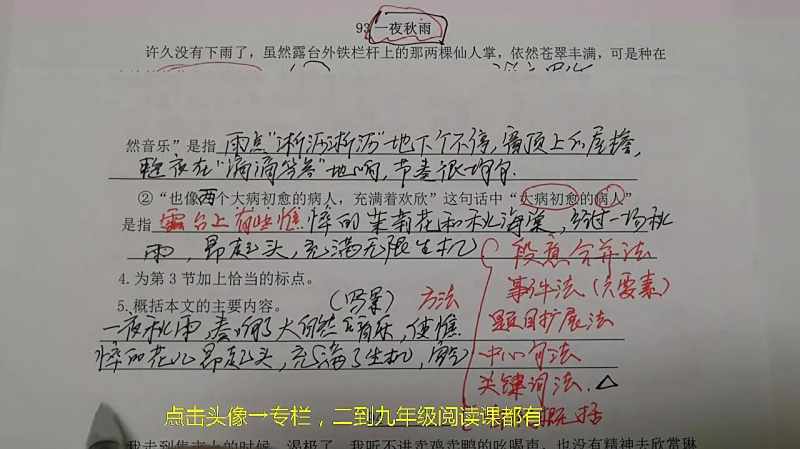 93 一夜秋雨
许久没有下雨了，虽然露台外铁栏杆上的那两棵仙人掌，依然苍翠丰满，可是种在
然音乐”是指 雨点“淅沥淅沥”地下个不停，屋顶上的屋檐，
整夜在“滴滴答答”地响，节奏很均匀.
②“也像两个大病初愈的病人，充满着欢欣”这句话中“大病初愈的病人”
是指 露台上有些憔悴的茉莉花和秋海棠，经过一场秋
雨，昂起头，充满无限生机
段意合并法
4.为第3节加上恰当的标点。
事件法（六要素）
5.概括本文的主要内容。（写景）方法
题目扩展法
一夜秋雨，奏响了大自然音乐，使憔
悴的花儿昂起头，充满了生机，
中心句法
关键词法.△
概括
点击头像→专栏，二到九年级阅读课都有
我走到集市上的时候，渴极了，我听不进卖鸡卖鸭的吆喝声，也没有精神去欣赏琳